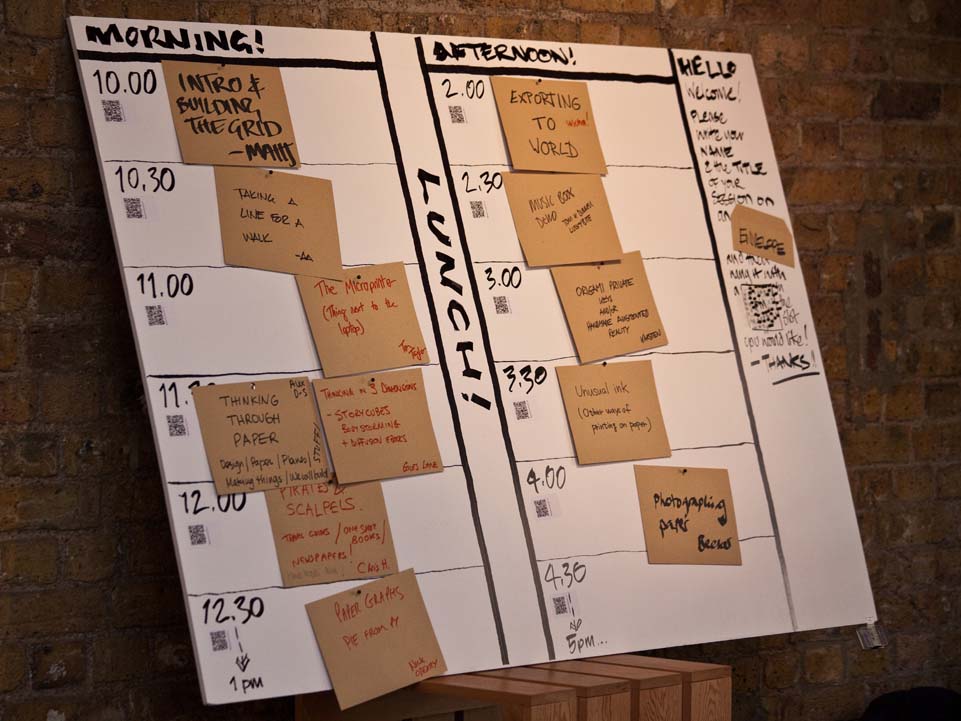 MORNING!
10.00
INTRO &
BUILDING
THE GRID
10.30
TAKING A
LINE FOR A
WALK
11.00
The Microprinter
(Thing next to the
laptop)
11.
THINKING
THROUGH
PAPER
Design / Paper / Planes /
Making things / We will build
STUFF!
Alex
D-S
THINKING IN 3 DIMENSIONS
- STORYCUBES
BODYSTORMING
+ DIFFUSION EBOOKS
GILES LANE
12.00
PIRATES &
SCALPELS.
TRAVEL GUIDES / ONE SHOT
BOOKS /
NEWSPAPERS!
Chris H.
12.30
1pm
PAPER GRAPHS
PIE FROM PY
LUNCH!
AFTERNOON!
2.00
EXPORTING
TO
WORLD
2.30
MUSIC BOX
DEMO
3.00
ORIGAMI PRIVATE
KEYS
AND/OR
HANDMADE AUGMENTED
REALITY
3.30
Unusual ink
(Other ways of
printing on paper)
4.00
Photographing
paper
4.30
5pm...
HELLO
Welcome!
Please
write your
NAME
& the TITLE
OF your
SESSION ON
an
ENVELOPE
you would like!
- THANKS!!